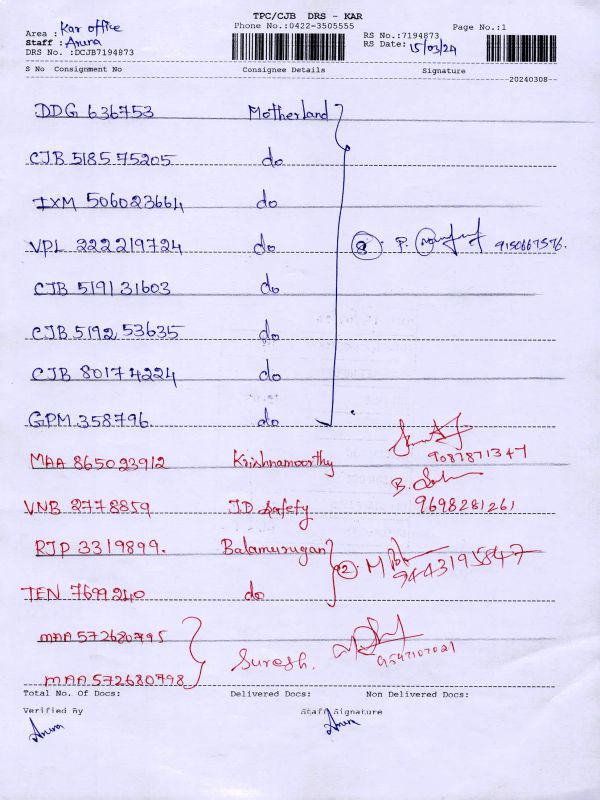 TPC/CJB DRS - KAR
Phone No.:0422-3505555 Page No.:1
Area : Kar office RS No.:7194873
Staff : Anura RS Date: 15/03/24
DRS No. :DCJB7194873
S No Consignment No Consignee Details Signature
20240308
DDG 636753 Motherland
CJB 518575205 do
IXM 506023664 do
VPL 222219724 do 8 P. 9150667576.
CJB 519131603 do
CJB 519253635 do
CJB 80174224 do
GPM 358796. do
MAA 865023912 Krishnamoorthy 9087871347
VNB 2778859 J.D Safety B. 9698281261
RJP 3319899. Balamurugan 2 M 9443195847
TEN 7699240 do
MAA 572680795
Suresh.
MAA 572680798
Total No. Of Docs: Delivered Docs: Non Delivered Docs:
Verified By Staff Signature
Anura Anura